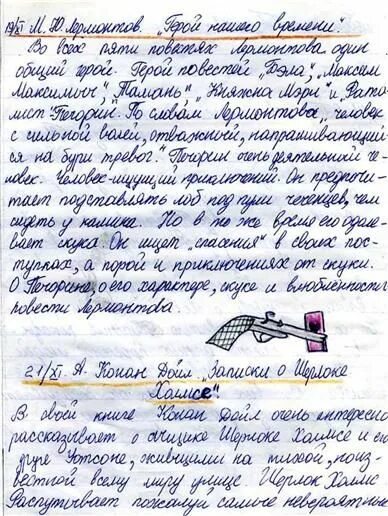 19/XI М. Ю. Лермонтов. "Герой нашего времени".
Во всех пяти повестях Лермонтова один
общий герой. Герой повестей "Бэла", "Максим
Максимыч", "Тамань", "Княжна Мэри" и "Фата-
лист" Печорин. По словам Лермонтова, "человек
с сильной волей, отважный, напрашивающий-
ся на бури тревог." Печорин очень деятельный че-
ловек. Человек-ищущий приключений. Он предпочи-
тает подставлять лоб под пули чеченцев, чем
сидеть у камина. Но в то же время его одоле-
вает скука. Он ищет "спасения" в своих пос-
тупках, а порой и приключениях от скуки.
О Печорине, о его характере, скуке и влюблённости
повести Лермонтова.
21/XI. А. Конан Дойл. "Записки о Шерлоке
Холмсе".
В своей книге Конан Дойл очень интересно
рассказывает о сыщике Шерлоке Холмсе и его
друге Уотсоне, живущими на тихой, поиз-
вестной всему миру улице. Шерлок Холмс
Распутывает пожалуй самые невероятные